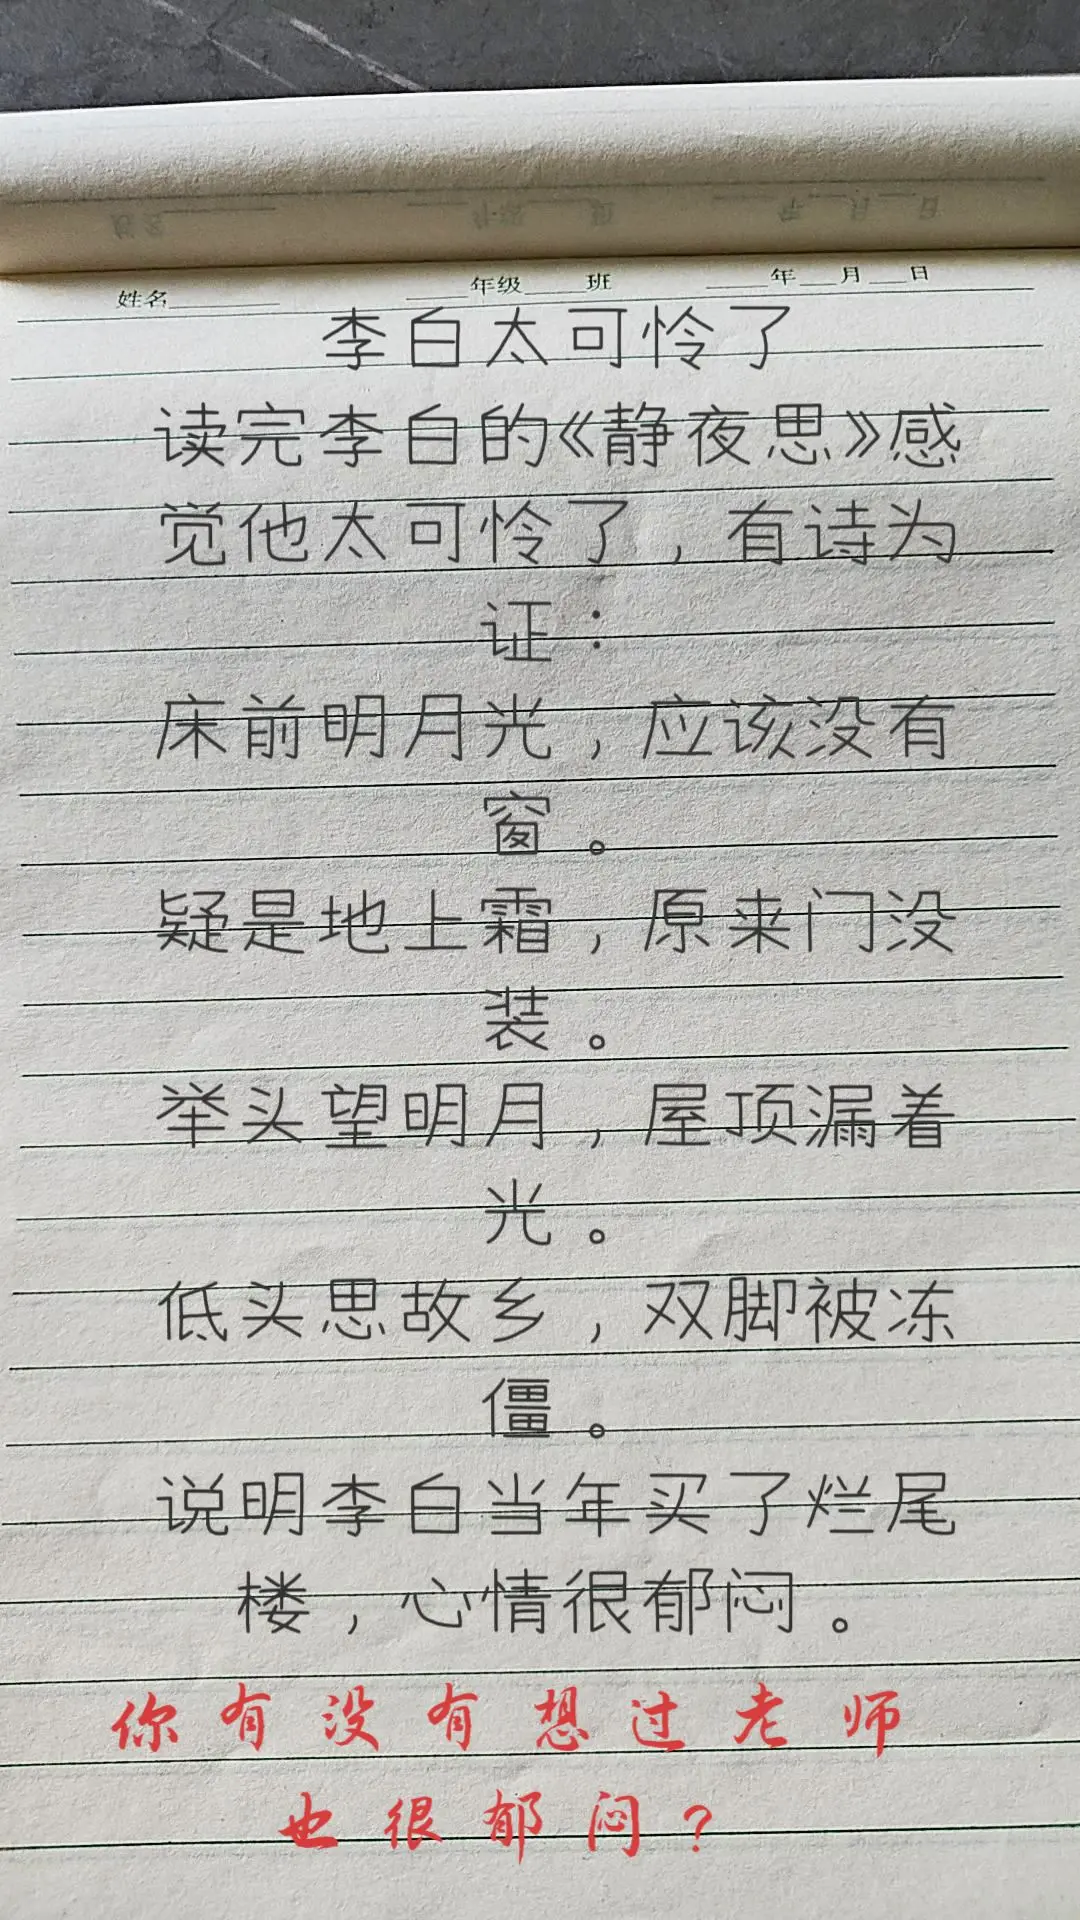 姓名________ ____年级____班 ____年__月__日
李白太可怜了
读完李白的《静夜思》感
觉他太可怜了，有诗为
证：
床前明月光，应该没有
窗。
疑是地上霜，原来门没
装。
举头望明月，屋顶漏着
光。
低头思故乡，双脚被冻
僵。
说明李白当年买了烂尾
楼，心情很郁闷。
你有没有想过老师
也很郁闷？